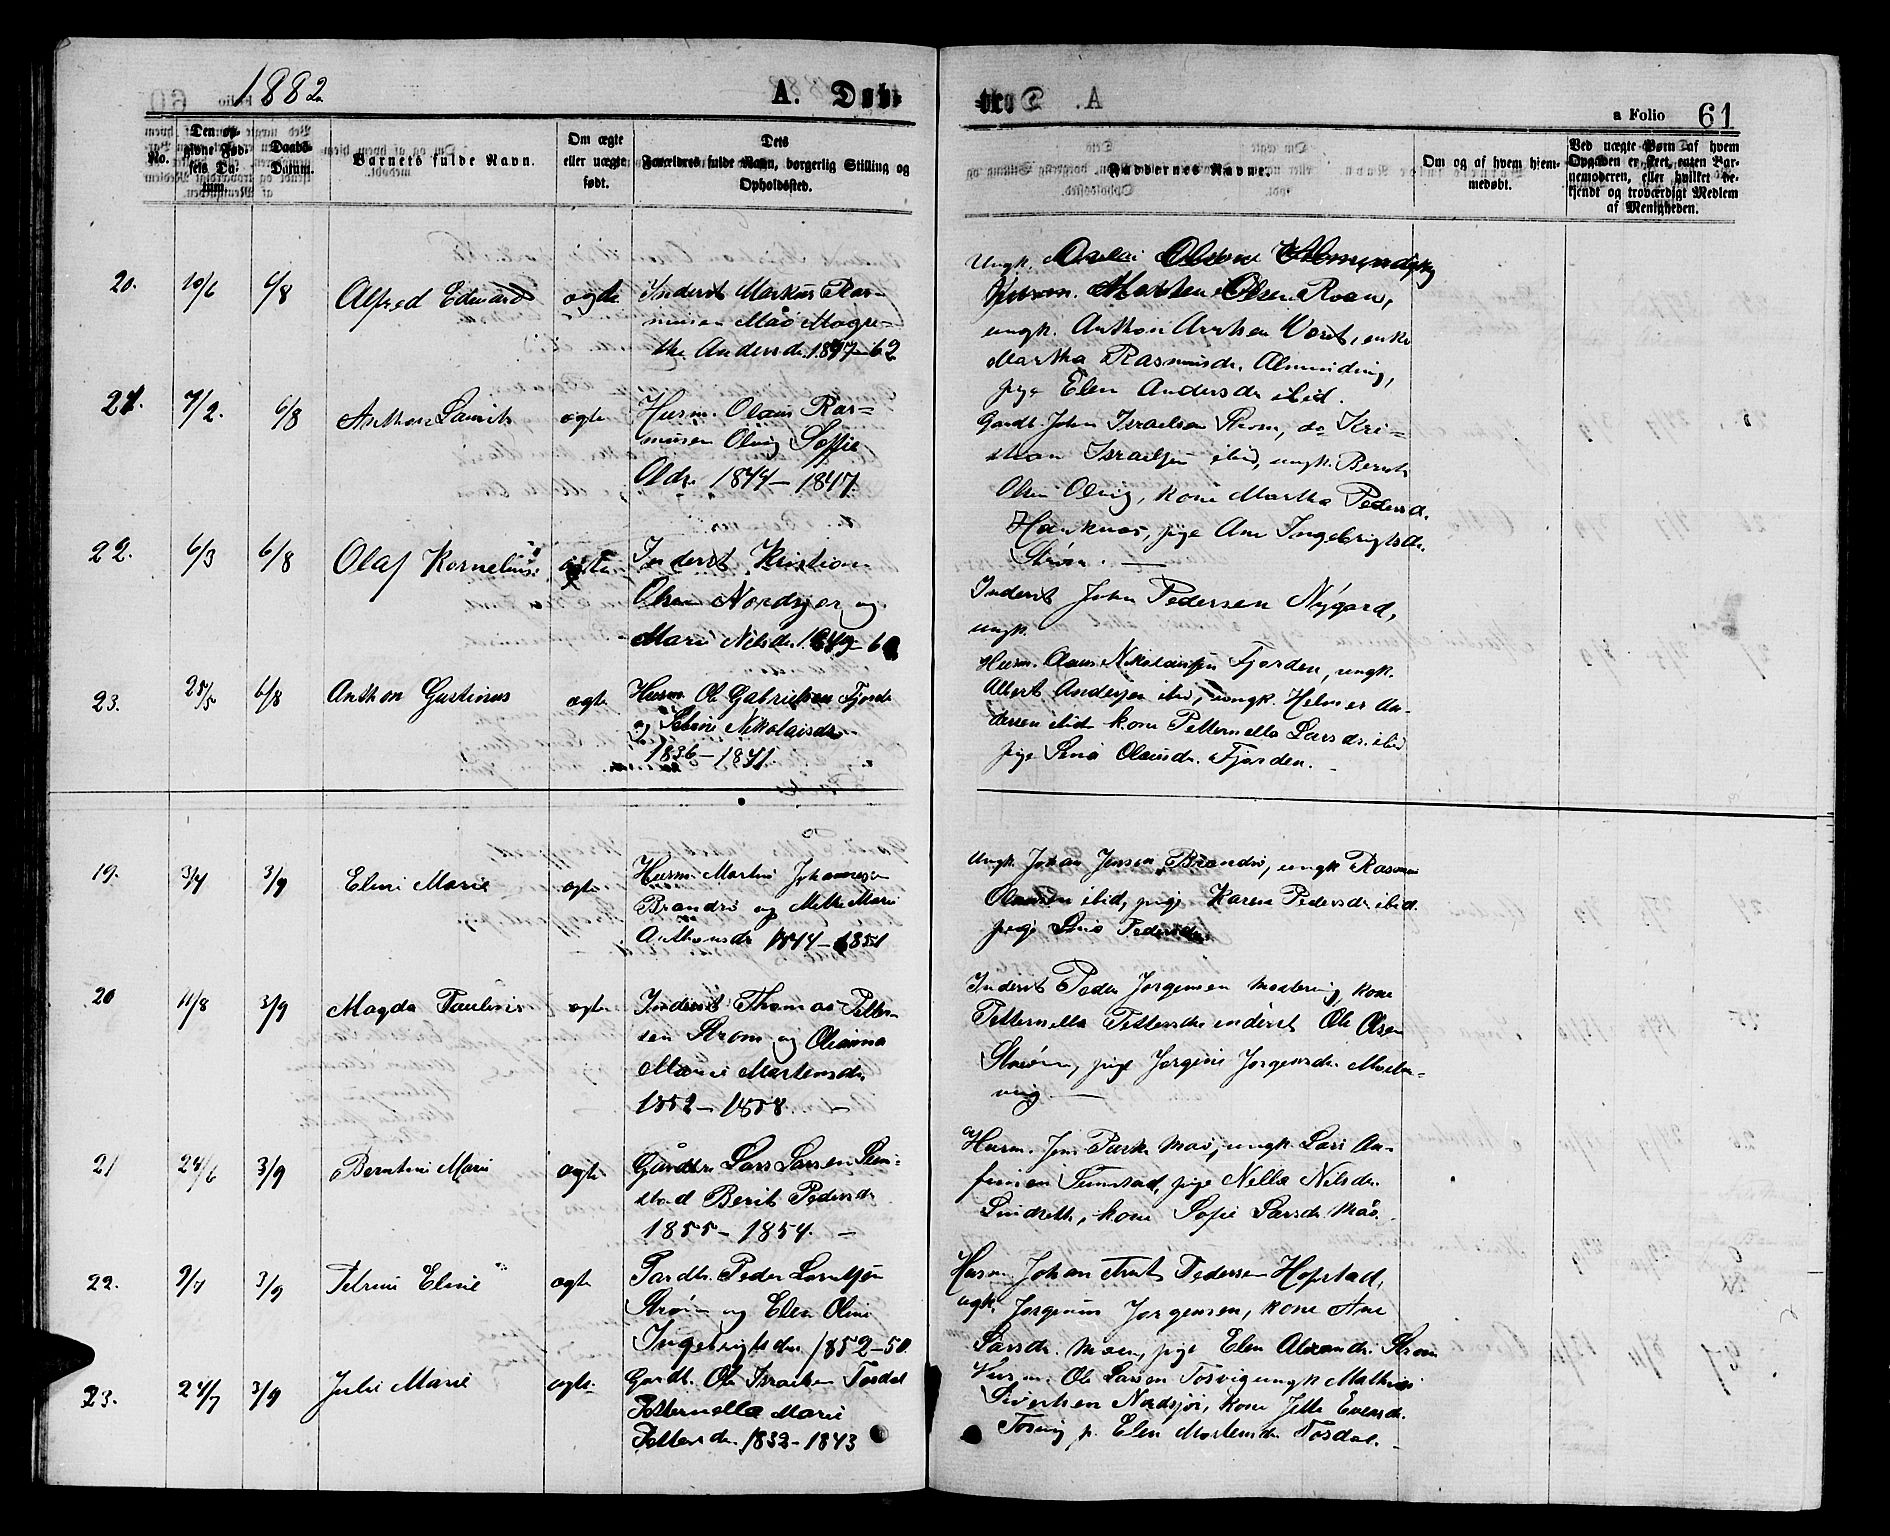 1882
A. Døb-
a Folio 61
No.
Den op-
givne Fød-
sels Da-
tum.
Daabs-
Datum.
Barnets fulde Navn.
Om ægte
eller uægte
født.
Dets
Forældres fulde Navn, borgerlig Stilling og
Opholdssted.
Faddernes Navne.
Om og af hvem hjem-
medøbt.
Ved uægte Børn af hvem
Opgaven er sket, enten Bar-
nemoderen, eller hvilket be-
kjendt og troværdigt Medlem
af Menigheden.
20. 10/6 6/8 Alfred Edvard ægte Inderst Markus Ras-
musen Måø Magre-
the Andersdr. 1847-62
Ungk.
Morten Olsen Roan,
ungk. Anthon Arntsen Voret, enke
Martha Rasmusdr. Almending,
pige Elen Andersdr ibid.
21. 7/2. 6/8 Anthon Laurits ægte Husm. Olaus Ras-
musen Olvig Soffie
Olsdr. 1844-1847
Gardb. John Israelsen Strøm, do Kri-
stian Israelsen ibid, ungk. Bernt
Olsen Olvig, kone Martha Pedersd.
pige Ane Ingebrigtsdr.
Strøm. —
22. 6/3 6/8 Olaf Kornelius ægte Inderst Kristian
Olsen Nordsjør og
Marie Nilsdr. 1849-6
Inderst John Pedersen Nygard,
ungk.
23. 25/5 6/8 Anthon Gustinus ægte Husm. Ole Gabrielsen Fjorde
og Nikolaisdr
1836-1841.
Husm. Claus Nikolaisen Fjorden, ungk.
Albert Andersen ibid, ungk. Helmer An-
dersen ibid kone Petternella Larsdr. ibid
pige Lina Olausdr. Fjorden. -
19. 3/4 3/9 Eline Marie ægte Husm. Martin Johannesen
Brandsø og Mette Marie
Anthonsdr 1844-1851
Ungk. Johan Jensen Brandsø, ungk Rasmus
Olaussen ibid, pige Karen Pedersdr ibid.
pige Lina Pedersdr
20 11/8 3/9 Magda Pauline ægte Inderst Thomas Petter-
sen Strøm og Olianna
Marie Mortensdr.
1852-1858. -
Inderst Peder Jørgensen Mostervig, kone
Petternella Pettersdr inderst Ole Olsen
Strøm, pige Jørgine Jørgensdr. Moster-
vig. —
21 24/6 3/9 Berntine Marie ægte Gårdbr. Lars Larsen Sum-
stad Berit Pedersdr
1855-1854. -
Husm. Jens Måø, ungk. Lars An-
finsen Sumstad, pige Nella Nilsdr.
kone Sofie Larsdr. Måø.
22. 9/7 3/9 Petrine Eline ægte Gardbr. Peder Larntsen
Strøm og Elen Oline
Ingebrigtsdr 1852-50.
Husm. Johan Arnt Pedersen Hopstad,
ugk. Jørginus Jørgensen, kone Ane
Larsdr. Moen, pige Elen Alexandr. Strøm
23. 24/7 3/9 Julie Marie ægte Gardb. Ole Israelsen Tosdal
Petternella Marie
Pettersdr. 1832-1843
Husm. Ole Larsen Torvig ungk Mathias
Sivertsen Nordsjør, kone Jette Evensdr.
p. Elen Mortensdr Tosdal. -